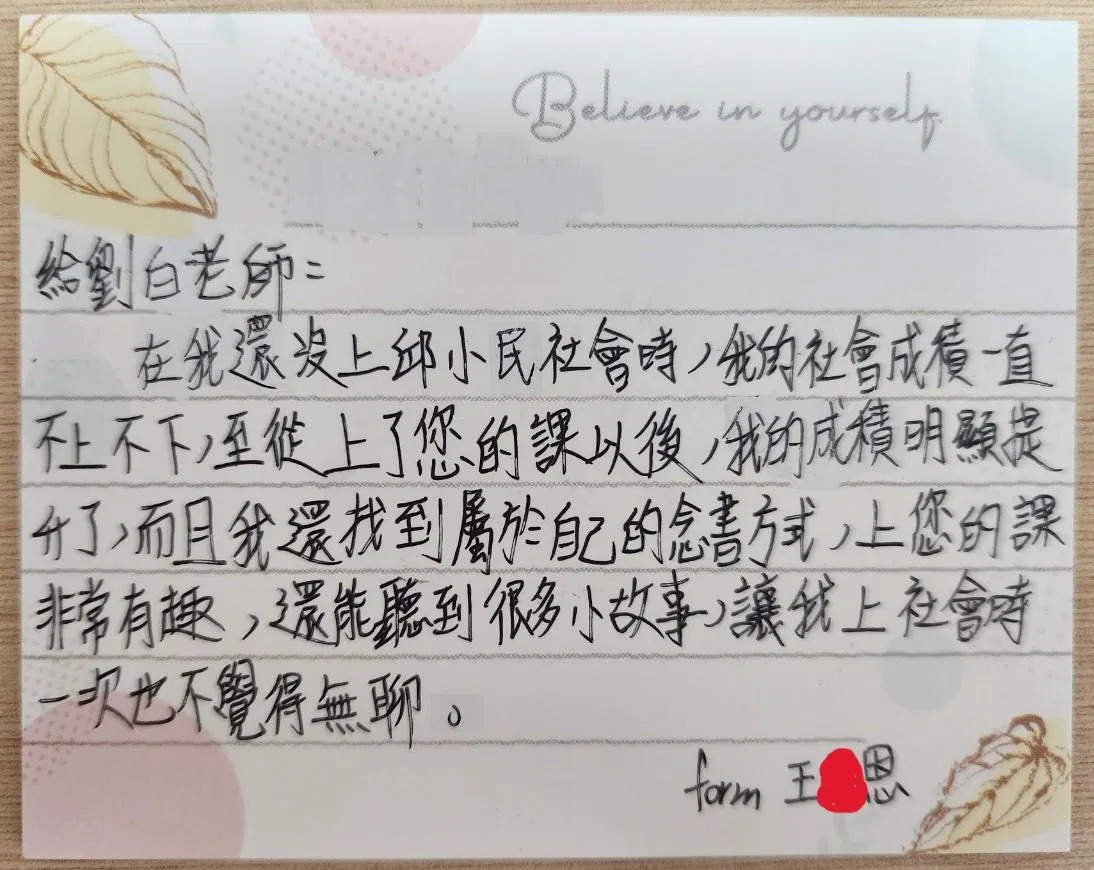 Believe in yourself
給劉白老師：
在我還沒上邱小民社會時，我的社會成積一直
不上不下，至從上了您的課以後，我的成積明顯提
升了，而且我還找到屬於自己的念書方式，上您的課
非常有趣，還能聽到很多小故事，讓我上社會時
一次也不覺得無聊。
form 王 恩